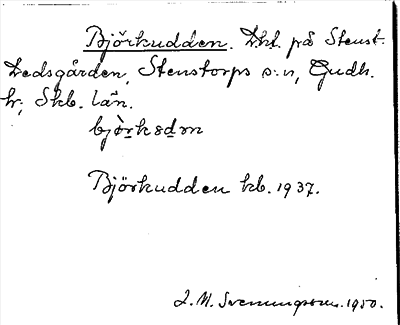 Björkudden. Lht. på Stenst.
Ledsgården, Stenstorps s:n, Gudh.
h; Skb. län.
bjò̱rksdm
Björkudden kb. 1937.
J. M. Svenningsson. 1950.